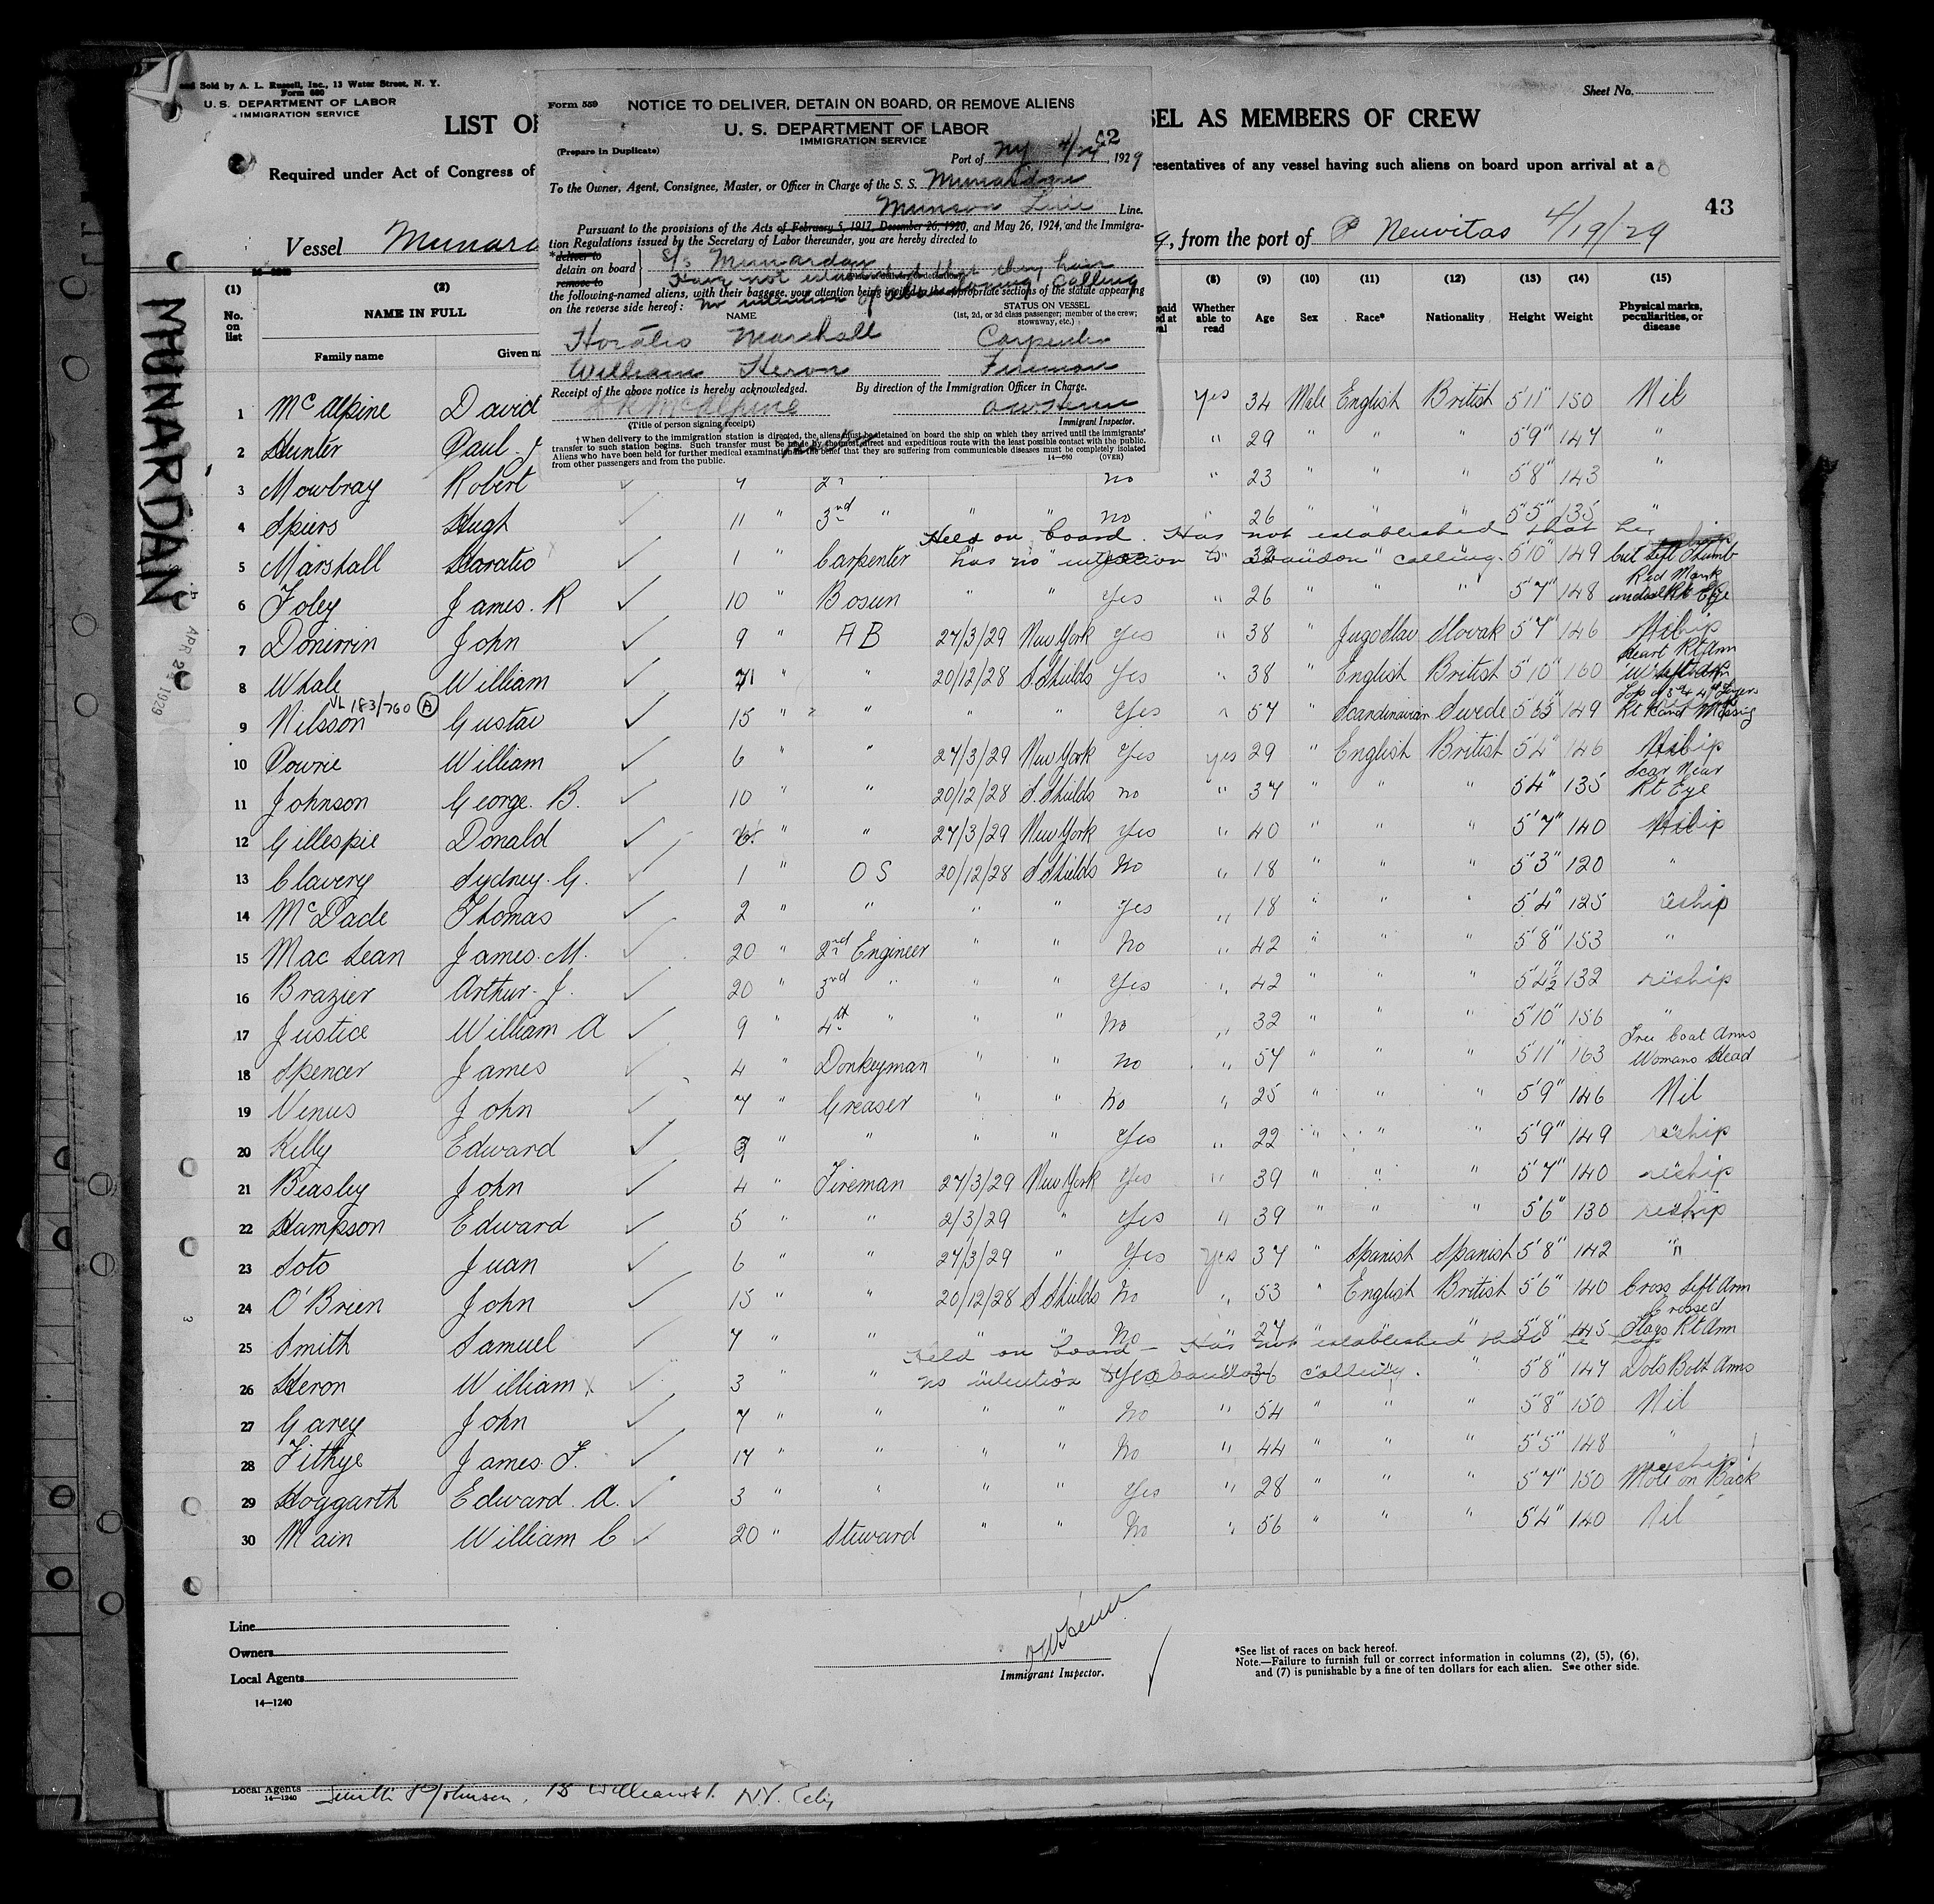 and Sold by A. L. Russell, Inc., 13 Water Street, N. Y.
Form 680
U. S. DEPARTMENT OF LABOR
IMMIGRATION SERVICE
Sheet No.
LIST OF
SEL AS MEMBERS OF CREW
Required under Act of Congress of
resentatives of any vessel having such aliens on board upon arrival at a
43
Vessel Munard
, from the port of P Neuvitas 4/19/29
MUNARDAN
APR 2 1929
Form 559
NOTICE TO DELIVER, DETAIN ON BOARD, OR REMOVE ALIENS
U. S. DEPARTMENT OF LABOR
IMMIGRATION SERVICE
(Prepare in Duplicate)
Port of NY 4/24, 1929
To the Owner, Agent, Consignee, Master, or Officer in Charge of the S. S. Munardan
Munson Line Line.
Pursuant to the provisions of the Acts of February 5, 1917, December 26, 1920, and May 26, 1924, and the Immigra-
tion Regulations issued by the Secretary of Labor thereunder, you are hereby directed to
*deliver to
detain on board
remove to
S/S Munardan
Have not established that they have
the following-named aliens, with their baggage, your attention being invited to the appropriate sections of the statute appearing
on the reverse side hereof:
no intention of abandoning calling
NAME
STATUS ON VESSEL
(1st, 2d, or 3d class passenger; member of the crew; stowaway, etc.)
Horatio Marshall Carpenter
William Heron Fireman
Receipt of the above notice is hereby acknowledged. By direction of the Immigration Officer in Charge.
McAlpine
(Title of person signing receipt) Immigrant Inspector.
† When delivery to the immigration station is directed, the aliens must be detained on board the ship on which they arrived until the immigrants'
transfer to such station begins. Such transfer must be made by the most direct and expeditious route with the least possible contact with the public.
Aliens who have been held for further medical examination in the belief that they are suffering from communicable diseases must be completely isolated
from other passengers and from the public. 14—660 (OVER)
(1) (2) (8) (9) (10) (11) (12) (13) (14) (15)
No. on list NAME IN FULL Whether able to read Age Sex Race* Nationality Height Weight Physical marks, peculiarities, or disease
Family name Given n
1 McAlpine David Yes 34 Male English British 5'11" 150 Nil
2 Hunter Paul J " 29 " " " 5'9" 147 "
3 Mowbray Robert 2" " no " 23 " " " 5'8" 143
4 Spiers Hugh 11 " 3rd " " " no " 26 " " " 5'5" 135 "
Held on board. Has not established that he
5 Marshall Haratio 1 " Carpenter has no intention to abandon calling. 5'10" 149 Cut Left Thumb
6 Foley James. R 10 " Bosun " " Yes " 26 " " " 5'7" 148 Red Mark under Rt Eye
7 Donirrin John 9 " AB 27/3/29 New York Yes " 38 " Jugoslav Slovak 5'7" 146
8 Whale William 71 " " 20/12/28 S. Shields Yes " 38 " English British 5'10" 160 Heart Rt Arm
VL 183/760 (A)
9 Nilsson Gustav 15 " " " " Yes " 57 " Scandinavian Swede 5'6½" 149 Top of 3rd & 4th Fingers Rt Hand Missing
10 Dowrie William 6 " " 27/3/29 New York Yes yes 29 " English British 5'4" 146
11 Johnson George. B. 10 " " 20/12/28 S. Shields no " 37 " " " 5'4" 135 Scar Near Rt Eye
12 Gillespie Donald " " 27/3/29 New York Yes " 40 " " " 5'7" 140
13 Clavery Sydney. G. 1 " OS 20/12/28 S Shields No " 18 " " " 5'3" 120 "
14 McDade Thomas 2 " " " " Yes " 18 " " " 5'4" 125 reship
15 MacLean James. M. 20 " 2nd Engineer " " No " 42 " " " 5'8" 153 "
16 Brazier Arthur. J. 20 " 3rd " " " Yes " 42 " " " 5'4½" 132 reship
17 Justice William A 9 " 4th " " " No " 32 " " " 5'10" 156 "
18 Spencer James 4 " Donkeyman " " no " 57 " " " 5'11" 163 Tree Coat Arms Womans Head
19 Venus John 7 " Greaser " " No " 25 " " " 5'9" 146 Nil
20 Kelly Edward 3 " " " " Yes " 22 " " " 5'9" 149 reship
21 Beasley John 4 " Fireman 27/3/29 New York Yes " 39 " " " 5'7" 140 reship
22 Hampson Edward 5 " " 2/3/29 " Yes " 39 " " " 5'6" 130 reship
23 Soto Juan 6 " " 27/3/29 " Yes yes 37 " Spanish Spanish 5'8" 142 "
24 O'Brien John 15 " " 20/12/28 S Shields No " 53 " English British 5'6" 140 Cross Left Arm
25 Smith Samuel 7 " " " " No " 27 " " " 5'8" 145 Crossed Flags Rt Arm
Held on board — Has not established that he has
26 Heron William 3 " " no intention to abandon calling. Yes 36 " 5'8" 147 Dots Both Arms
27 Garey John 7 " " " " No " 54 " " " 5'8" 150 Nil
28 Fithye James. F. 17 " " " " No " 44 " " " 5'5" 148 "
29 Hoggarth Edward. A. 3 " " " " Yes " 28 " " " 5'7" 150 reship Mole on Back
30 Main William C 20 " Steward " " No " 56 " " " 5'4" 140 Nil
Line
Owners
Local Agents
14—1240
Immigrant Inspector.
*See list of races on back hereof.
Note.—Failure to furnish full or correct information in columns (2), (5), (6),
and (7) is punishable by a fine of ten dollars for each alien. See other side.
Local Agents Smith & Johnson, 18 William St. N.Y. City
14—1240